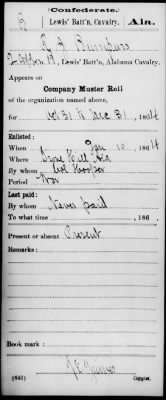 (Confederate.)
B Lewis' Batt'n, Cavalry. Ala.
R J
Lewis' Batt'n, Alabama Cavalry.
Appears on
Company Muster Roll
of the organization named above,
for Oct 31 to Dec 31, 1864
Enlisted:
When 10, 1864
Where Hill
By whom Hooper
Period War
Last paid:
By whom Never paid
To what time , 186 .
Present or absent Present
Remarks:
Book mark:
J E
(642) Copyist.